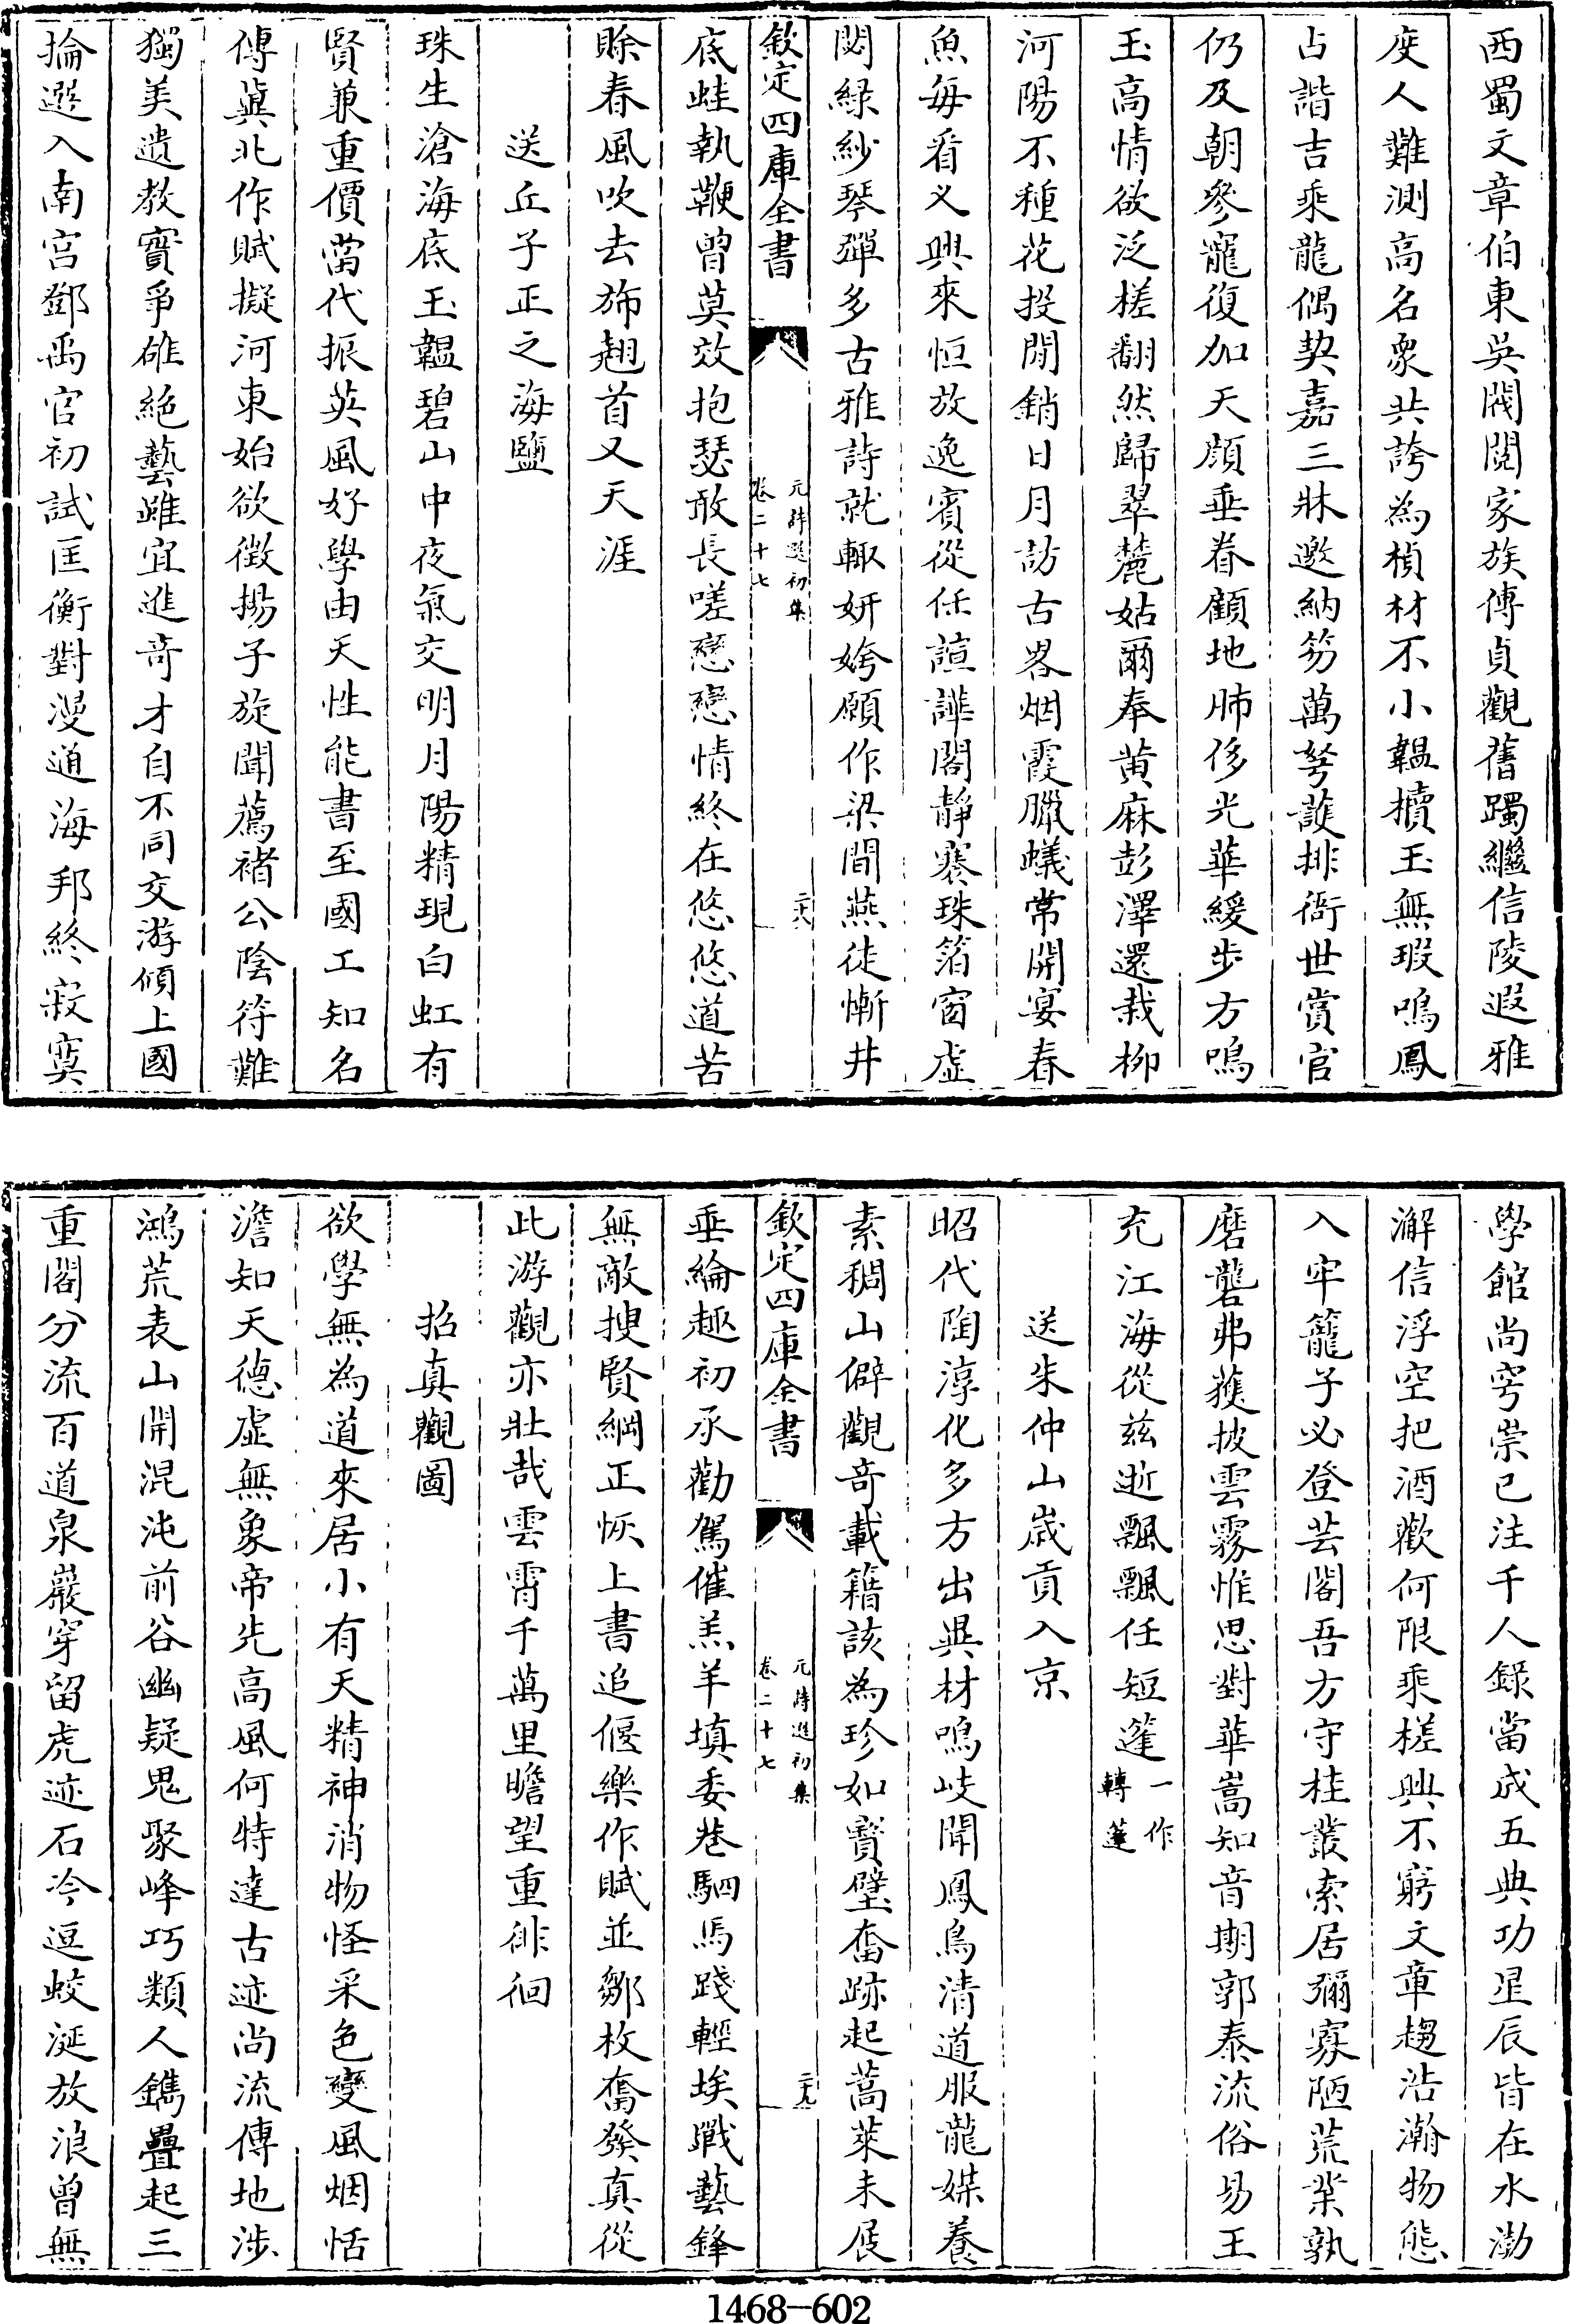 西蜀文章伯東吳閥閱家族傳貞觀舊躅繼信陵遐雅
度人難測高名衆共誇為楨材不小韞櫝玉無瑕鳴鳳
占諧吉乘龍偶契嘉三牀邀納笏萬弩護排衙世賞官
仍及朝參寵復加天顔垂眷顧地肺侈光華緩步方鳴
玉高情欲泛槎翻然歸翠麓姑爾奉黄麻彭澤還栽柳
河陽不種花投閒銷日月訪古畧烟霞臘蟻常開宴春
魚每看乂興來恒放逸賓從任諠譁閣靜褰珠箔窗虛
閟緑紗琴彈多古雅詩就輙妍姱願作梁間燕徒慚井
欽定四庫全書
元詩選初集
卷二十七
二十八
底蛙執鞭曾莫效抱瑟敢長嗟戀戀情終在悠悠道苦
賒春風吹去斾翹首又天涯
送丘子正之海鹽
珠生滄海底玉韞碧山中夜氣交明月陽精現白虹有
賢兼重價當代振英風好學由天性能書至國工知名
傳冀北作賦擬河東始欲徴揚子旋聞薦褚公陰符難
獨美遺教實爭雄絶藝雖宜進竒才自不同交游傾上國
掄選入南宮鄧禹官初試匡衡對漫通海邦終寂寞
學館尚穹崇已注千人録當成五典功星辰皆在水渤
澥信浮空把酒歡何限乘槎興不窮文章趨浩瀚物態
入牢籠子必登芸閣吾方守桂叢索居彌寡陋荒業孰
磨礱弗獲披雲霧惟思對華嵩知音期郭泰流俗易王
充江海從兹逝飄飄任短篷一作轉蓬
送朱仲山歲貢入京
昭代陶淳化多方出異材鳴岐聞鳳鳥清道服龍媒養
素稠山僻觀竒載籍該為珍如寳璧奮跡起蒿萊未展
欽定四庫全書
元詩選初集
卷二十七
二十九
垂綸趣初承勸駕催羔羊填委巷駟馬踐輕埃戰藝鋒
無敵搜賢網正恢上書追偃樂作賦並鄒枚奮發真從
此游觀亦壯哉雲霄千萬里瞻望重徘徊
招真觀圖
欲學無為道來居小有天精神消物怪采色變風烟恬
澹知天德虛無象帝先高風何特達古迹尚流傳地涉
鴻荒表山開混沌前谷幽疑鬼聚峰巧類人鐫疊起三
重閣分流百道泉巖穿留虎迹石冷逗蛟涎放浪曾無
1468—602